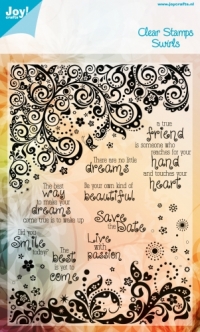 Joy!
crafts
www.joycrafts.nl
Clear Stamps
Swirls
a true
friend
is someone who
reaches for your
hand
and touches your
heart
There are no little
dreams
The best
way
to make your
dreams
come true is to wake up
Be your own kind of
beautiful
Save
the
Date
Did you
Smile
today?
Live
with
passion
The
best
is yet to
come